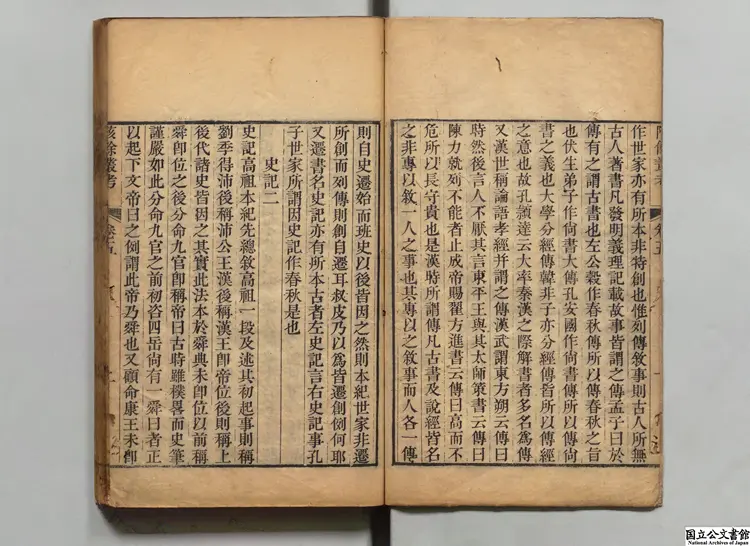 作世家亦有所本非特創也惟列傳敘事則古人所無
古人著書凡發明義理記載故事皆謂之傳孟子曰於
傳有之謂古書也左公穀作春秋傳所以傳春秋之旨
也伏生弟子作尚書大傳孔安國作尚書傳所以傳尚
書之義也大學分經傳韓非子亦分經傳皆所以傳經
之意也故孔穎達云大率秦漢之際解書者多名為傳
又漢世稱論語孝經并謂之傳漢武謂東方朔云傳曰
時然後言人不厭其言東平王與其太師策書云傳曰
陳力就列不能者止成帝賜翟方進書云傳曰高而不
危所以長守貴也是漢時所謂傳凡古書及說經皆名
之非專以敘一人之事也其專以之敘事而人各一傳
則自史遷始而班史以後皆因之然則本紀世家非遷
所創而列傳則創自遷耳叔皮乃以為皆遷創例何耶
又遷書名史記亦有所本古者左史記言右史記事孔
子世家所謂因史記作春秋是也
史記二
史記高祖本紀先總敘高祖一段及述其初起事則稱
劉季得沛後稱沛公王漢後稱漢王卽帝位後則稱上
後代諸史皆因之其實此法本於舜典未卽位以前稱
舜卽位之後分命九官卽稱帝曰古時雖樸畧而史筆
謹嚴如此分命九官之前初咨四岳尚有一舜曰者正
以起下文帝曰之例謂此帝乃舜也又顧命康王未卽
陔餘叢考
卷五
国立公文書館
National Archives of Japan